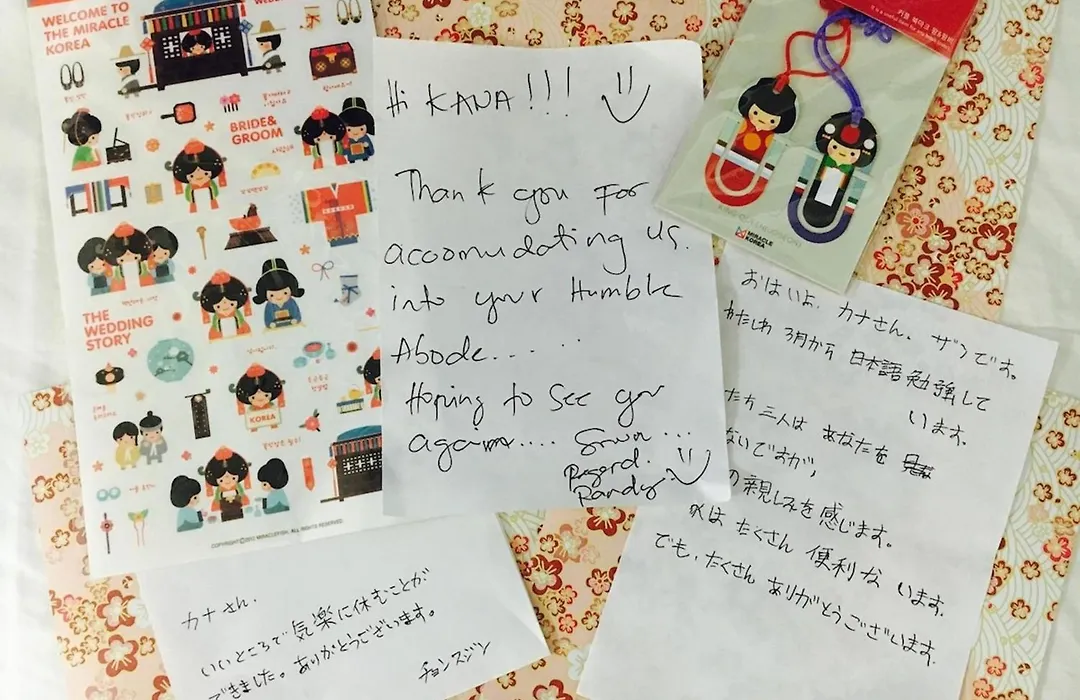 WELCOME TO
THE MIRACLE
KOREA
BRIDE&
GROOM
THE
WEDDING
STORY
KOREA
COPYRIGHTⓒ2012 MIRACLEFISH. ALL RIGHTS RESERVED.
Hi KANA!!!
Thank you For
accomudating us.
into your Humble
Abode.....
Hoping to see you
again.... Soon...
Regard.
Randy
커플 북마크
MIRACLE
KOREA
おはいよ. カナさん. ザンです。
わたしわ 3月から 日本語勉強して
います。
たち 三人は あなたを
ないですが,
の親しみを感じます。
は たくさん 便利な います.
でも, たくさん ありがとうございます.
カナさん.
いいところで 気楽に休むことが
できました。ありがとうございます。
チョンスジン